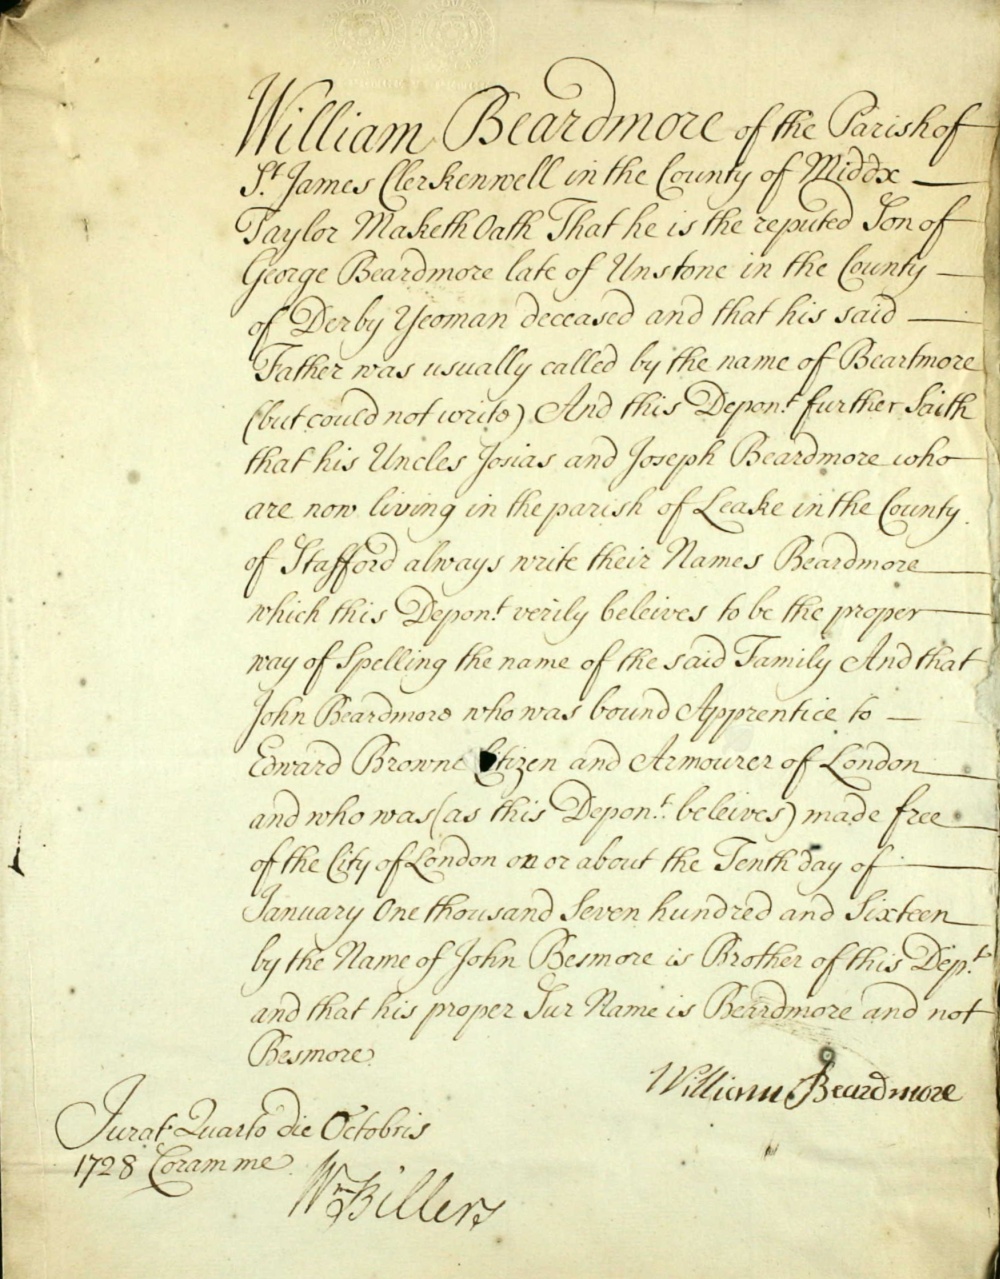 William Beardmore of the Parish of
St. James Clerkenwell in the County of Middx
Taylor Maketh Oath That he is the reputed Son of
George Beardmore late of Unstone in the County
of Derby Yeoman deceased and that his said
Father was usually called by the name of Beartmore
(but could not write) And this Depont. further Saith
that his Uncles Josias and Joseph Beardmore who
are now living in the parish of Leake in the County
of Stafford always write their Names Beardmore
which this Depont. verily beleives to be the proper
way of Spelling the name of the said Family And that
John Beardmore who was bound Apprentice to
Edward Browne Citizen and Armourer of London
and who was (as this Depont. beleives) made free
of the City of London on or about the Tenth day of
January One thousand Seven hundred and Sixteen
by the Name of John Besmore is Brother of this Dept.
and that his proper Sur Name is Beardmore and not
Besmore.
William Beardmore
Jurat Quarto die Octobris
1728 Coram me
Wm Billers